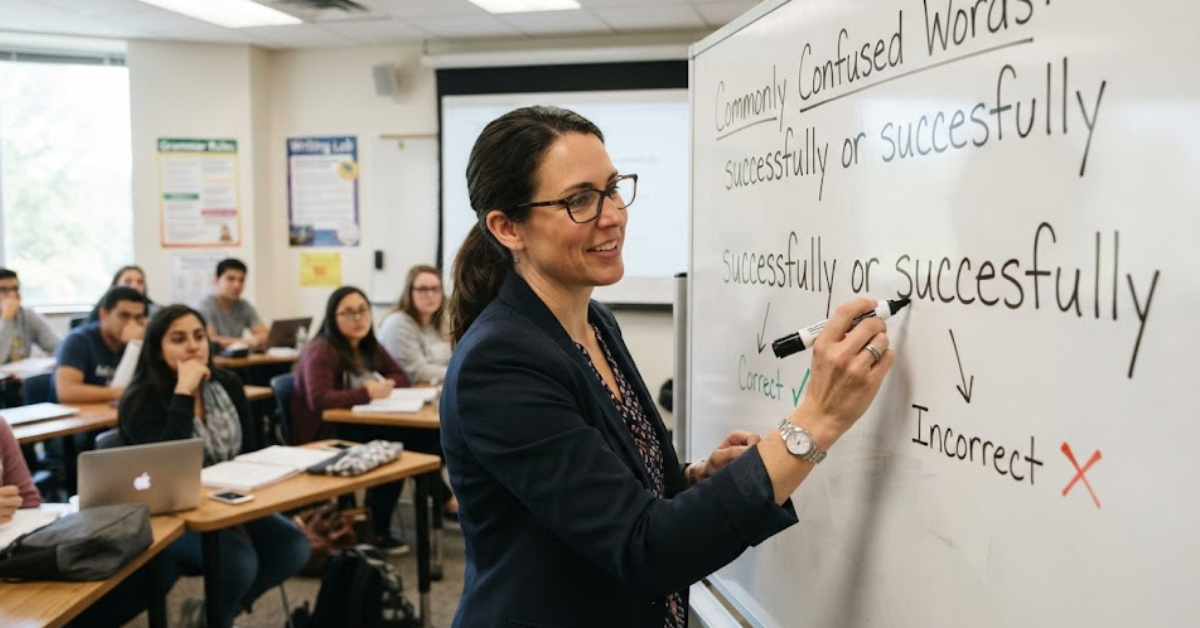 Grammar Rules
Writing Lab
Commonly Confused Words:
successfully or succesfully
successfully or succesfully
Correct ✓
Incorrect ✗